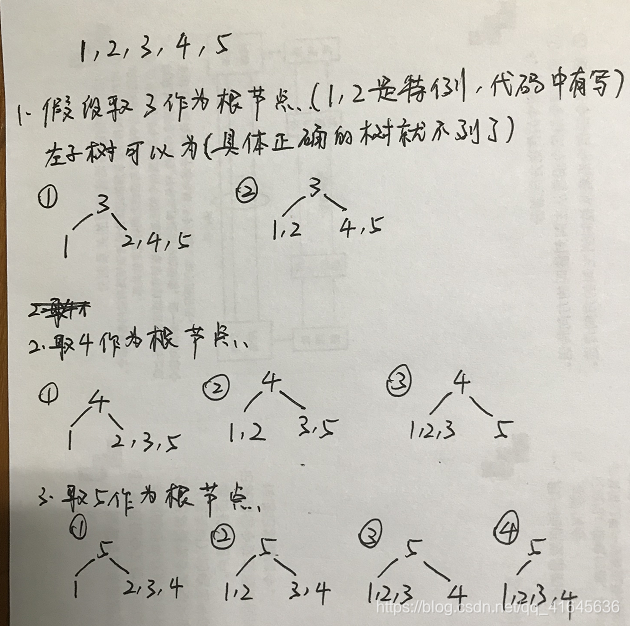 1,2,3,4,5
1.假设取3作为根节点、(1,2是特例,代码中有写)
左子树可以为(具体正确的树就不列了)
① ②
3 3
1 2,4,5 1,2 4,5
2.取4作为根节点、
① ② ③
4 4 4
1 2,3,5 1,2 3,5 1,2,3 5
3.取5作为根节点、
① ② ③ ④
5 5 5 5
1 2,3,4 1,2 3,4 1,2,3 4 1,2,3,4
https://blog.csdn.net/qq_41645636